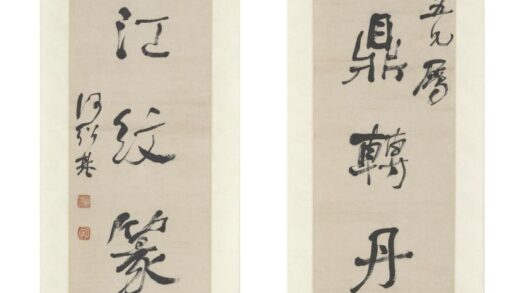 五兄屬
鼎轉丹
江紋篆
何紹基